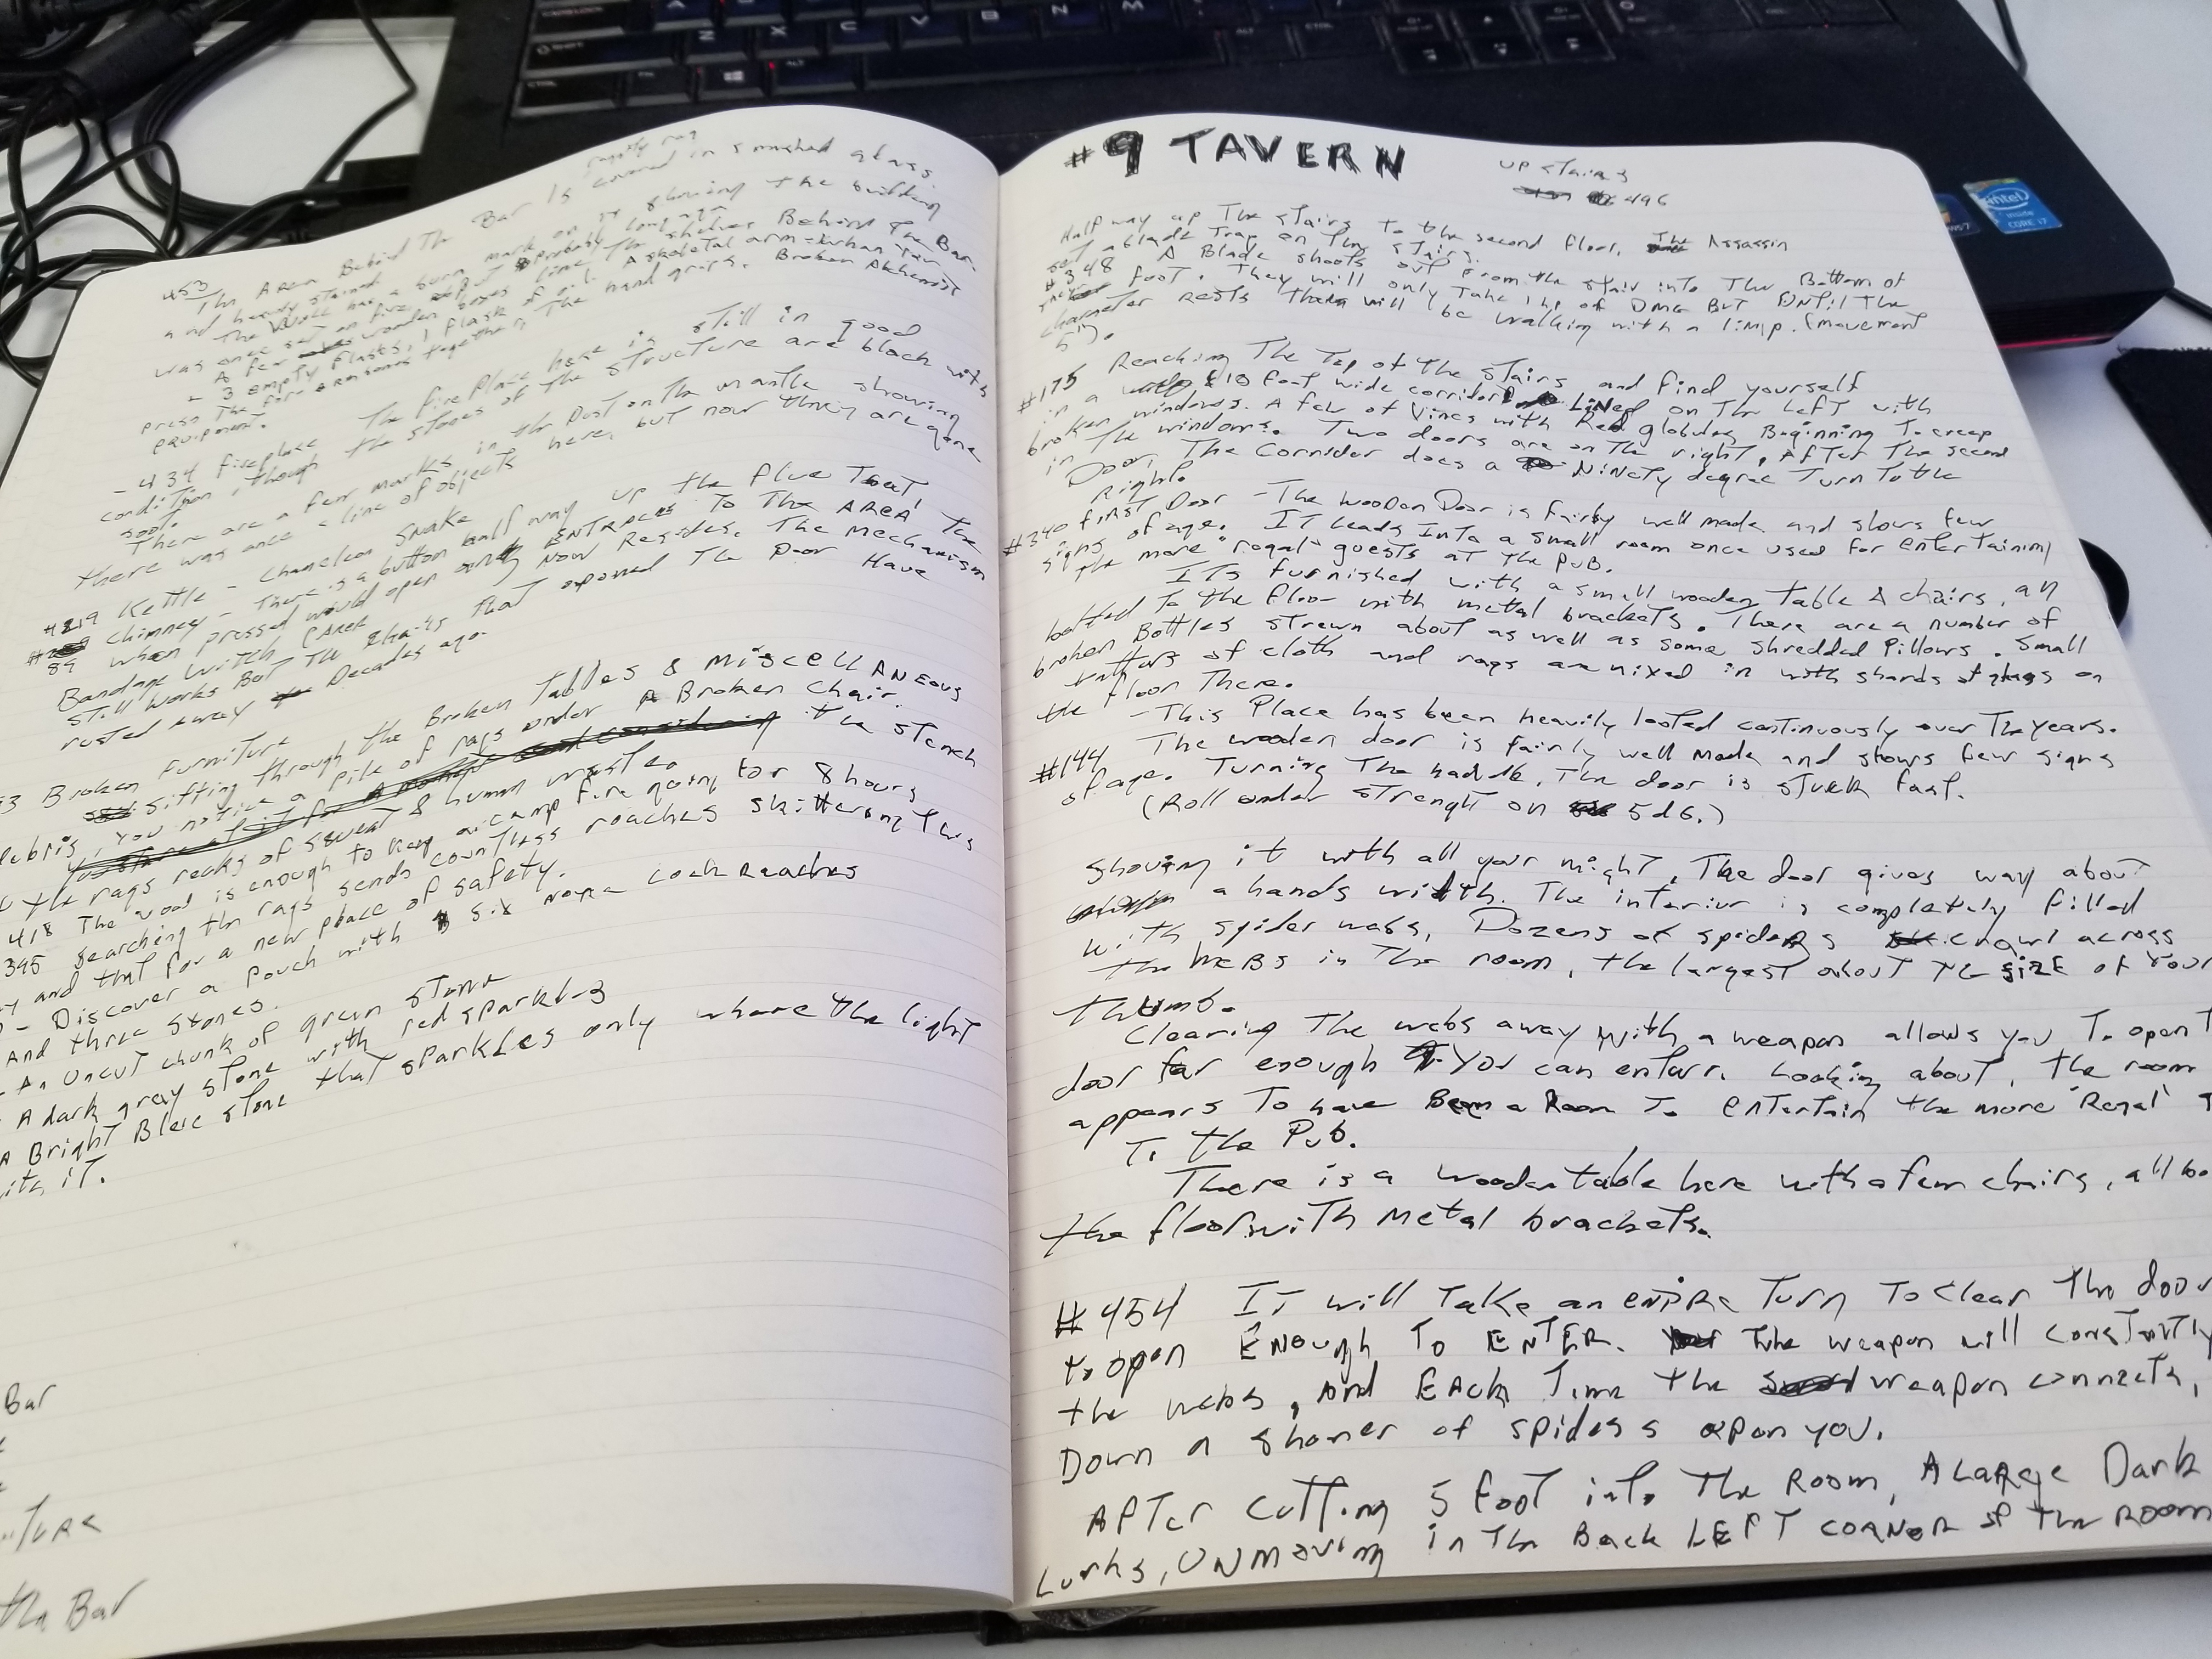 ragity rag
453 The Area Behind The Bar Is covered in smashed glass
and heavily stained
The has a burn mark on it showing the building
was once set on fire probably long ago
A few wooden boxes line The shelves Behind The Bar.
- 3 empty flasks, 1 flask of oil. A skeletal arm - when you
press The fore arm bones together, The hand grips. Broken Alchemist
equipment.
- 434 fireplace The fireplace here is still in good
condition, though the stones of the structure are black with
soot.
There are a few marks in the Dust on the mantle showing
there was once a line of objects here, but now they are gone
#219 Kettle - Chameleon Snake
Chimney - There is a button half way up the flue That,
89 when pressed would open ENTRACES To The AREA the
Bandage Witch (Area Now Resides. The Mechanism
still works But The that exposed The Door Have
rusted away Decades ago.
53 Broken Furniture
sifting through the Broken Tables & MiscellANEOUS
debris, You notice a pile of rags under A Broken Chair.
the rags reeks of sweat & human waste. the stench
418 The wood is enough to keep a camp fire going for 8 hours
395 Searching the rags sends countless roaches skittering this
and that for a new place of safety.
- Discover a pouch with six more cockroaches
And three stones.
- An Uncut chunk of green stone
A dark gray stone with red sparkles
A Bright Blue stone that sparkles only where the light
its it.
Bar
the Bar
#9 TAVERN
UP stairs
496
Half way up The stairs To the second floor, The Assassin
set a blade Trap on The stairs.
#348 A Blade shoots out From the stair into The Bottom of
they foot. They will only Take 1 hp of DMG But UNTil The
character rests they will be walking with a limp. (movement
5').
#175 Reaching The Top of The stairs and find yourself
in a 10 foot wide corridor Lined on The Left with
broken windows. A few of Vines with Red globules Beginning To creep
in The windows. Two doors are on The right, After The second
Door, The Corridor does a NiNety degree Turn To the
Right.
#340 first Door - The wooden Door is fairly well made and shows few
signs of age. IT leads Into a small room once used for entertaining
the more "royal" guests at The Pub.
ITs furnished with a small wooden Table & chairs, all
bolted To the floor with metal brackets. There are a number of
broken Bottles strewn about as well as some shredded Pillows. Small
tatters of cloth and rags are mixed in with shards of glass on
the floor There.
- This Place has been heavily looted continuously over The years.
#144 The wooden door is fairly well Made and shows few signs
of age. Turning The handle, The door is stuck fast.
(Roll under strenght on 5d6.)
Shoving it with all your might, The door gives way about
a hands width. The interior is completely filled
with spider webs, Dozens of spiders crawl across
the WEBS in The room, the largest about The SIZE of Your
thumb.
Clearing The webs away with a weapon allows you To open T
door far enough You can enter. Looking about, the room
appears To have Been a Room To entertain the more 'Royal' g
To the Pub.
There is a wooden table here with a few chairs, all bo
the floor with Metal brackets.
#454 IT will Take an entire Turn To Clear The door
to open ENough To ENTER. The weapon will constantly
the webs, And EAch Time the weapon connects,
Down a shower of spiders upon you.
AfTer cutting 5 fooT into The Room, A LARge Dark
Lurks, UNMoving in The Back LEFT CORNeR of The ROOM